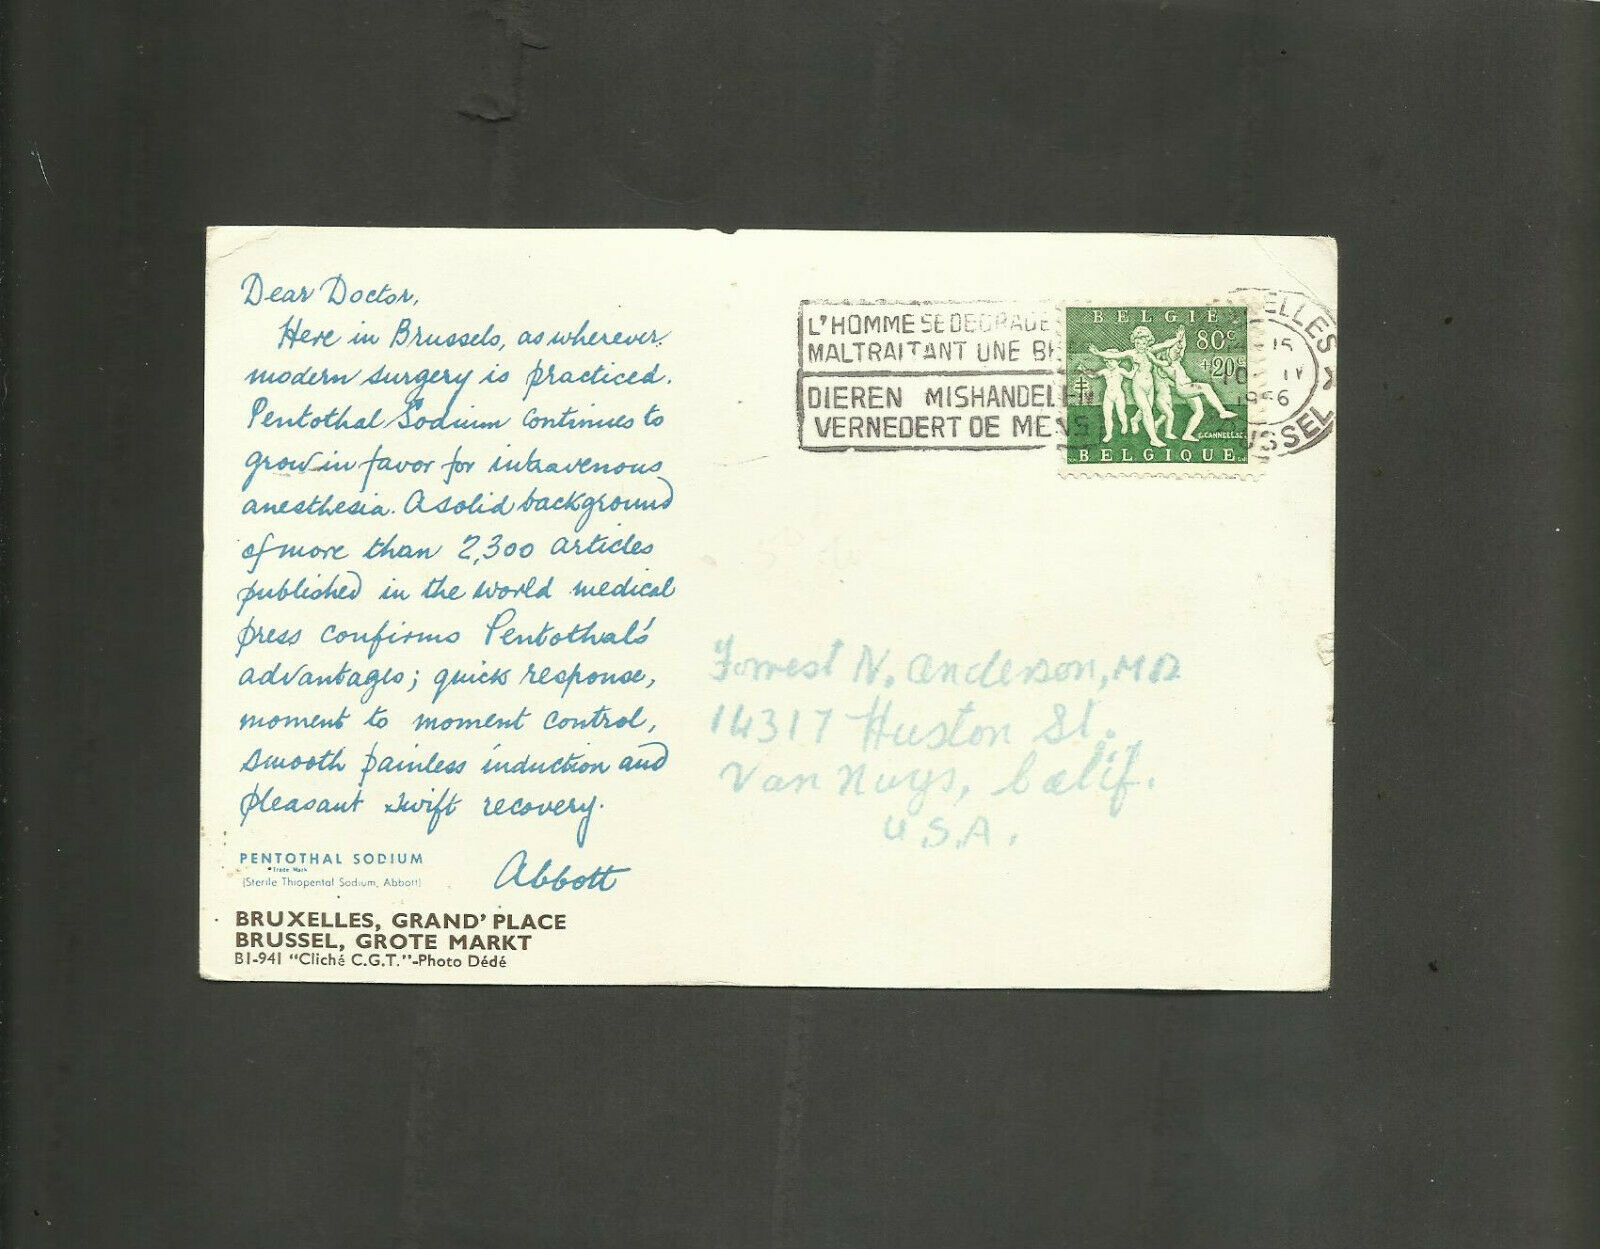 Dear Doctor,
Here in Brussels, as wherever
modern surgery is practiced.
Pentothal Sodium continues to
grow in favor for intravenous
anesthesia. A solid background
of more than 2,300 articles
published in the world medical
press confirms Pentothal's
advantages; quick response,
moment to moment control,
smooth painless induction and
pleasant swift recovery.
Abbott
PENTOTHAL SODIUM
Trade Mark
(Sterile Thiopental Sodium, Abbott)
BRUXELLES, GRAND' PLACE
BRUSSEL, GROTE MARKT
BI-941 "Cliché C.G.T."-Photo Dédé
L'HOMME SE DEGRADE
MALTRAITANT UNE
DIEREN MISHANDELEN
VERNEDERT DE MENS
BELGIE
80c
+20c
BELGIQUE
ELLES X
15
IV
1956
USSEL
Forrest N. Anderson, MD
14317 Huston St.
Van Nuys, Calif.
U.S.A.